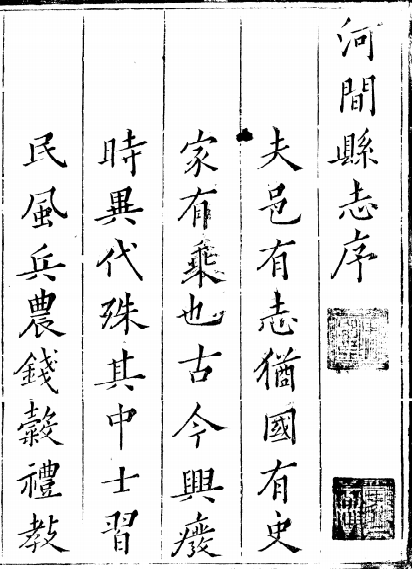 河間縣志序
夫邑有志猶國有史
家有乗也古今興癈
時異代殊其中士習
民風兵農錢糓禮教